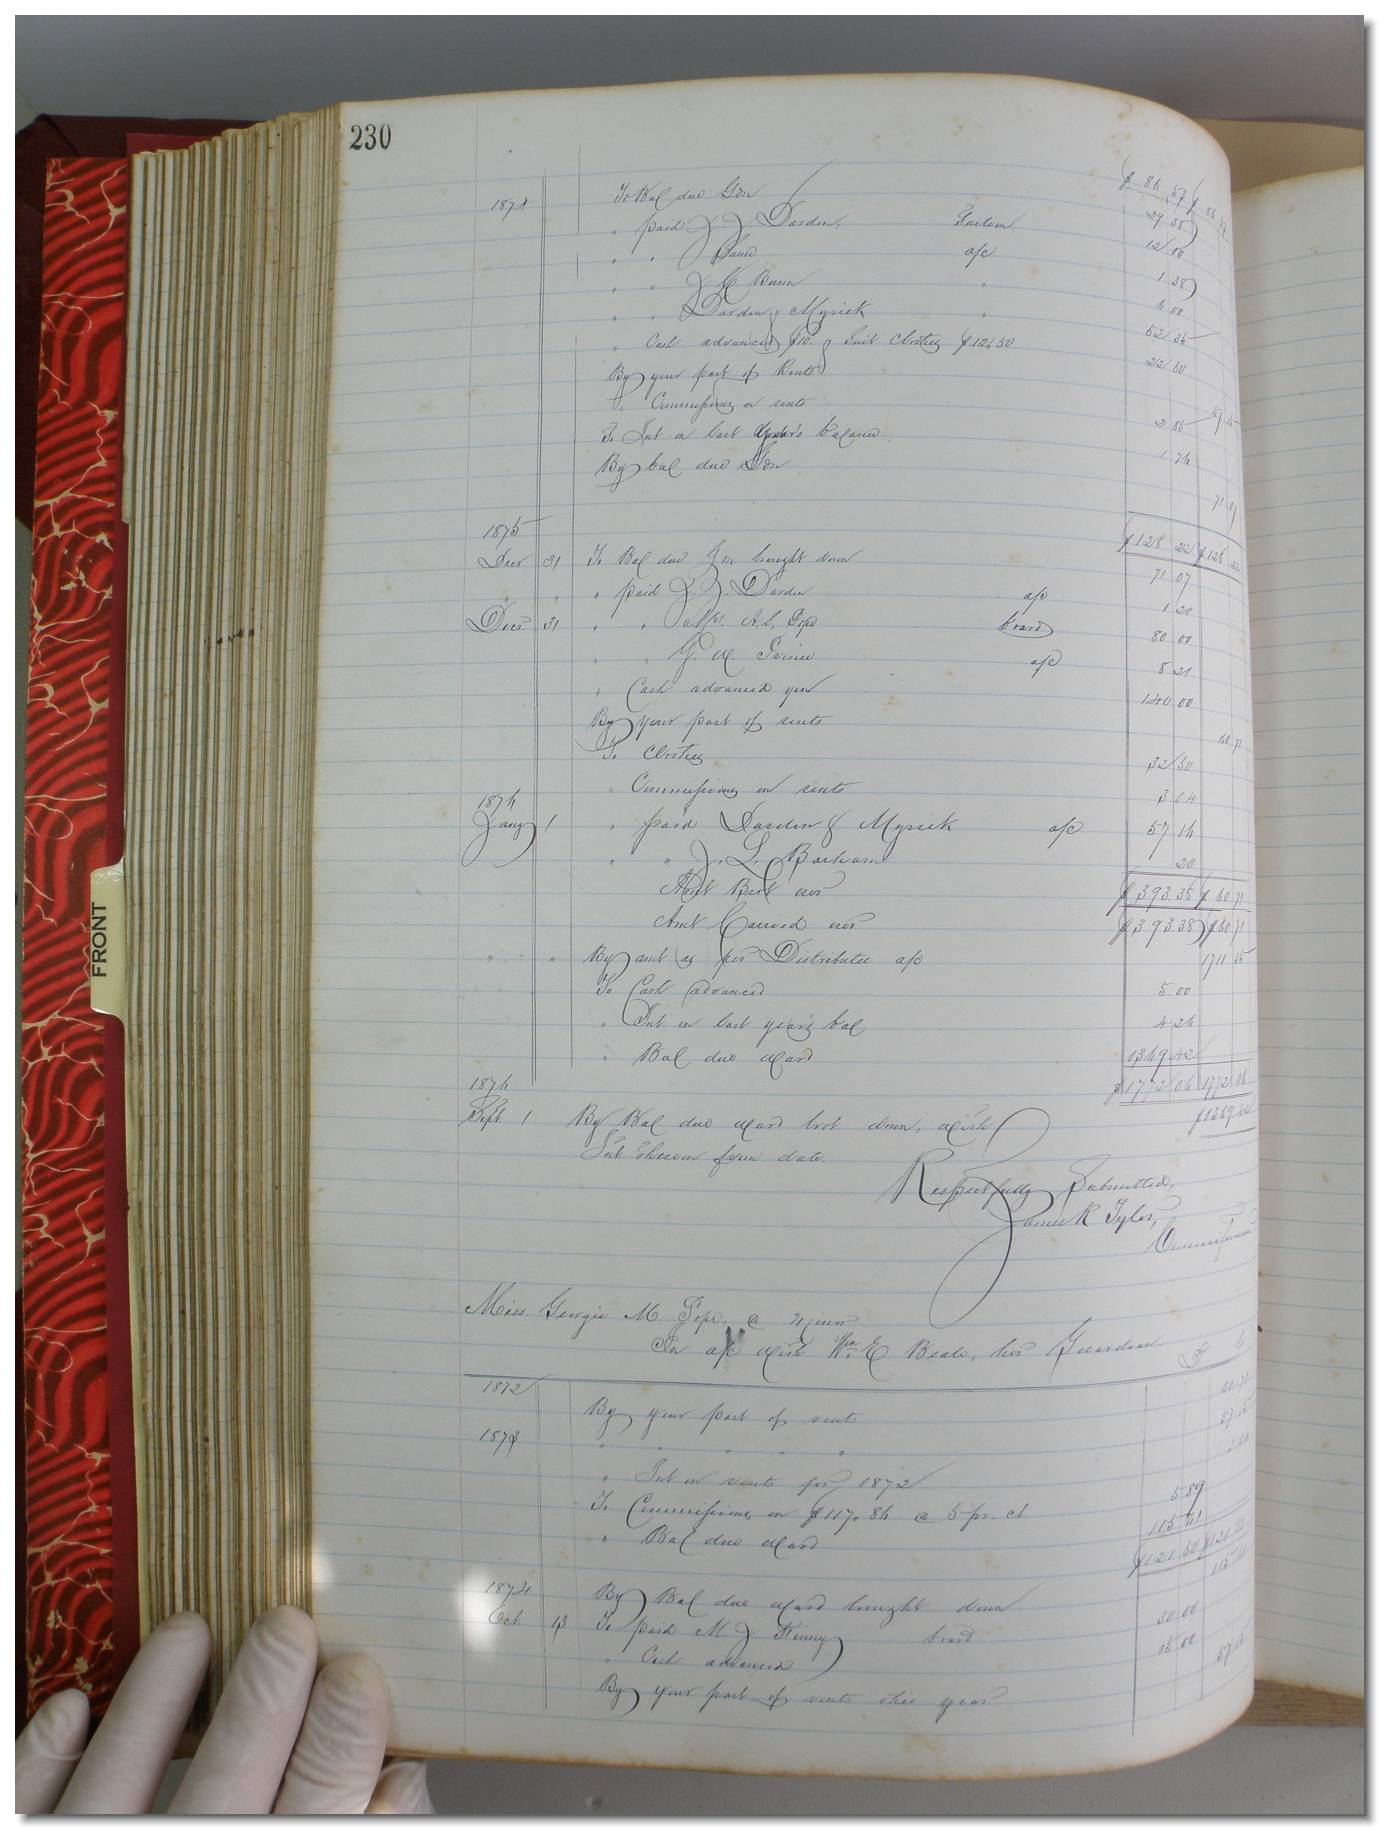 230
1874 To Bal due Gdn
" paid J. J. Darden, Tuition 29 38
" " J Band a/c 12 00
" " J E Bunn " 1 38
" " Darden & Myrick " 4.00
" Cash advanced $10. & Suit Clothes $12.50 22 50
By your part of Rents
" Commissions on rents 2 85
To Int on last year's balance
By bal due Gdn 71 07
1875 $128 22 $128 22
Dec 31 To Bal due Gdn brought down 71 07
" " " paid J. J. Darden a/c 1 20
Dec. 31 " " Mrs. A. S. Pope board 80 00
" " G. W. a/c 8 21
" Cash advanced you 140 00
By your part of rents 60 71
To Clothes 32 50
" Commissions on rents 3 04
1876
Jany 1 " paid Darden & Myrick a/c 57 16
" " J. L. Barham 20
Amt Brot over $393.38 $60 71
Amt Carried over $393.38 $60 71
" " By amt as per Distributee a/c 1711 35
To Cash advanced 5 00
" Int on last year's bal 4 26
" Bal due Ward 1369 42
1876 $1772 06 1772 06
Sept. 1 By Bal due Ward brot down, with $1369 42
Int thereon from date.
Respectfully Submitted,
James R Tyler,
Commissioner
Miss. Georgie M. Pope,
In a/c with Wm. E Beale, her Guardian. Dr C
1872
By your part of rents
1873 " " " " " 57 15
" Int on rents for 1872
To Commissions on $117.86 @ 5 pr. ct 5 89
" Bal due Ward 115 61
$121 50 $121 50
1874 By Bal due Ward brought down 115 61
Oct. 13 To paid M J Kinny board 30 00
" Cash advanced 15 00
By your part of rents this year 57 15
FRONT